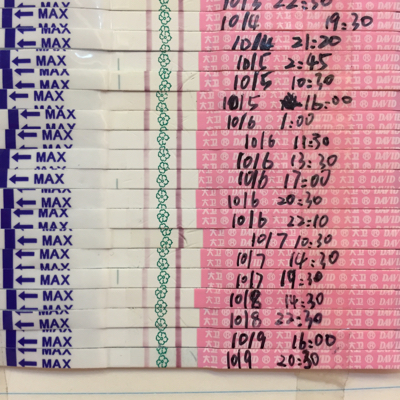 MAX 10/3 22:30
MAX 10/4 19:30
MAX 10/4 21:20
MAX 10/5 2:45
MAX 10/5 10:30
MAX 10/5 16:00 DAVID
MAX 10/6 1:00
MAX 10/6 11:30
MAX 10/6 13:30
MAX 10/6 17:00
MAX 10/6 20:30
MAX 10/6 22:10
MAX 10/7 10:30
MAX 10/7 14:30
MAX 10/7 19:30
MAX 10/8 14:30
MAX 10/8 22:30
MAX 10/9 16:00
MAX 10/9 20:30